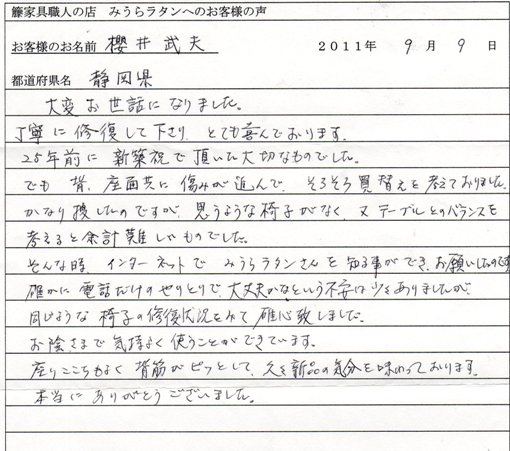 籐家具職人の店　みうらラタンへのお客様の声
お客様のお名前　櫻井武夫　2011年 9月 9日
都道府県名　静岡県
大変お世話になりました。
丁寧に修復して下さり とても喜んでおります。
25年前に 新築祝で頂いた大切なものでした。
でも 背、座面共に傷みが進んで、そろそろ買替えを考えておりました。
かなり捜したのですが、思うような椅子がなく、又テーブルとのバランスを
考えると余計難しいものでした。
そんな時、インターネットで みうらラタンさんを知る事ができ、お願いしたのです
確かに電話だけのやりとりで、大丈夫かなという不安は少々ありましたが、
同じような椅子の修復状況をみて 確心致しました。
お陰さまで気持よく使うことができています。
座りごこちもよく 背筋がピッとして、久々新品の気分を味わっております。
本当にありがとうございました。